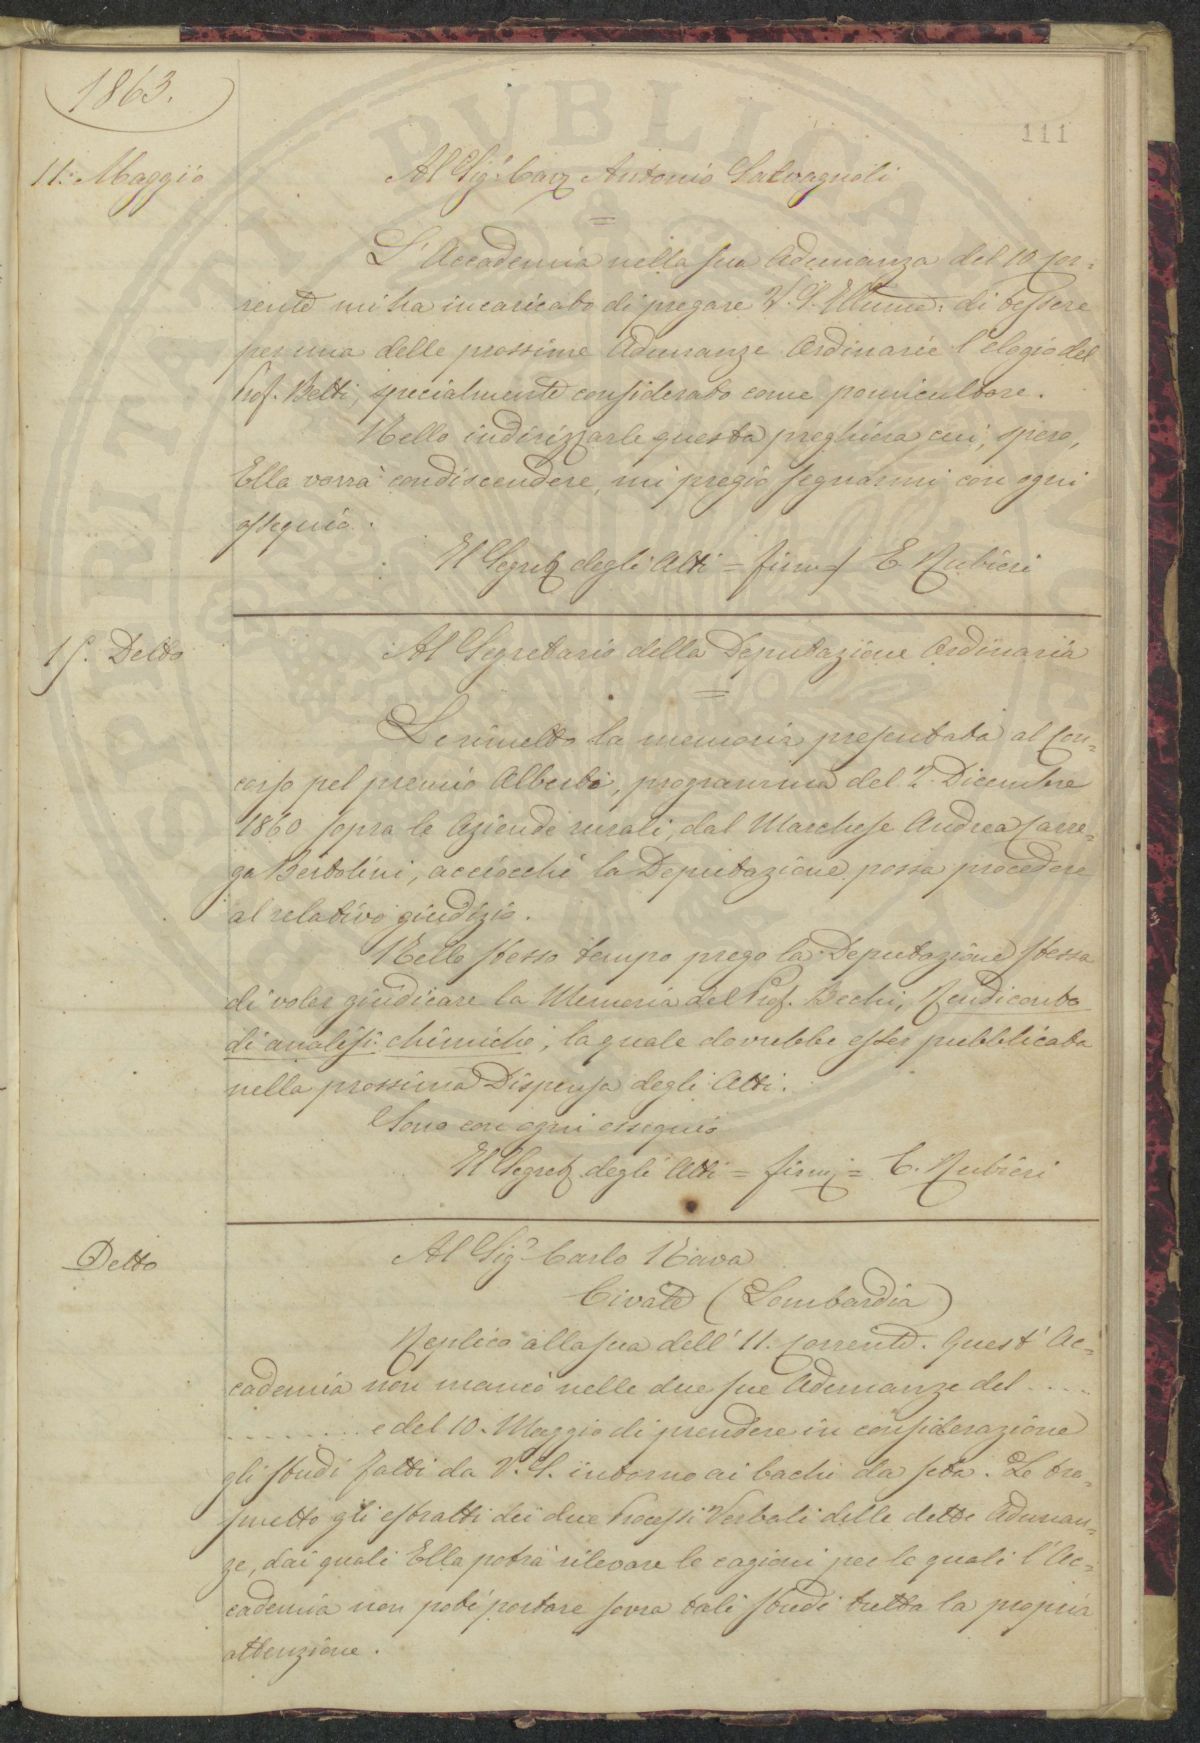 1863.
111
11. Maggio
Al Sig.r Cav. Antonio Salvagnoli
=
L'Accademia nella sua Adunanza del 10 cor=
rente mi ha incaricato di pregare V. S. Illuma: di tessere
per una delle prossime Adunanze Ordinarie l'elogio del
Prof. Betti, specialmente considerato come pomicultore.
Nello indirizzarle questa preghiera cui, spero,
Ella vorrà condiscendere, mi pregio segnarmi con ogni
ossequio.
Il Segret. degli Atti = firm.) E. Rubieri
15. Detto
Al Segretario della Deputazione Ordinaria
=
Le rimetto la memoria presentata al Con=
corso pel premio Alberti, programma del 2. Dicembre
1860 sopra le Aziende rurali, dal Marchese Andrea Carre=
ga Bertolini, acciocchè la Deputazione possa procedere
al relativo giudizio.
Nello stesso tempo prego la Deputazione stessa
di voler giudicare la Memoria del Prof. Bechi, Rendiconto
di analisi chimiche, la quale dovrebbe esser pubblicata
nella prossima Dispensa degli Atti.
Sono con ogni ossequio
Il Segret. degli Atti = firm = E. Rubieri
Detto
Al Sig.r Carlo Nava
Civate (Lombardia)
Replico alla sua dell'11. corrente. Quest'Ac=
cademia non mancò nelle due sue Adunanze del .....
........ e del 10. Maggio di prendere in considerazione
gli studi fatti da V. S. intorno ai bachi da seta. Le tra=
smetto gli estratti dei due Processi Verbali delle dette Adunan=
ze, dai quali Ella potrà rilevare le cagioni per le quali l'Ac=
cademia non potè portare sovra tali studi tutta la propria
attenzione.
SPIRITALI PUBLICA